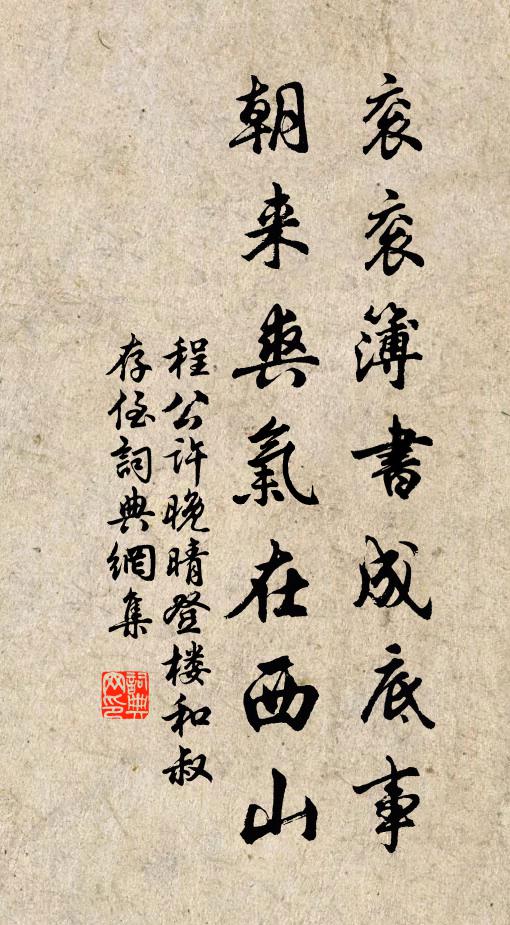 衮衮簿书成底事
朝来爽氣在西山
程公许晚晴登楼和叔
存侄詞典網集
詞典网印